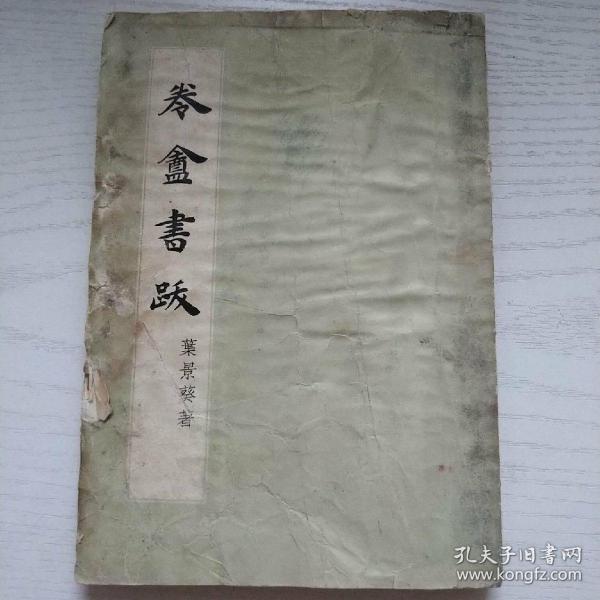 卷盦書跋
葉景葵著
孔夫子旧書网
www.kongfz.com